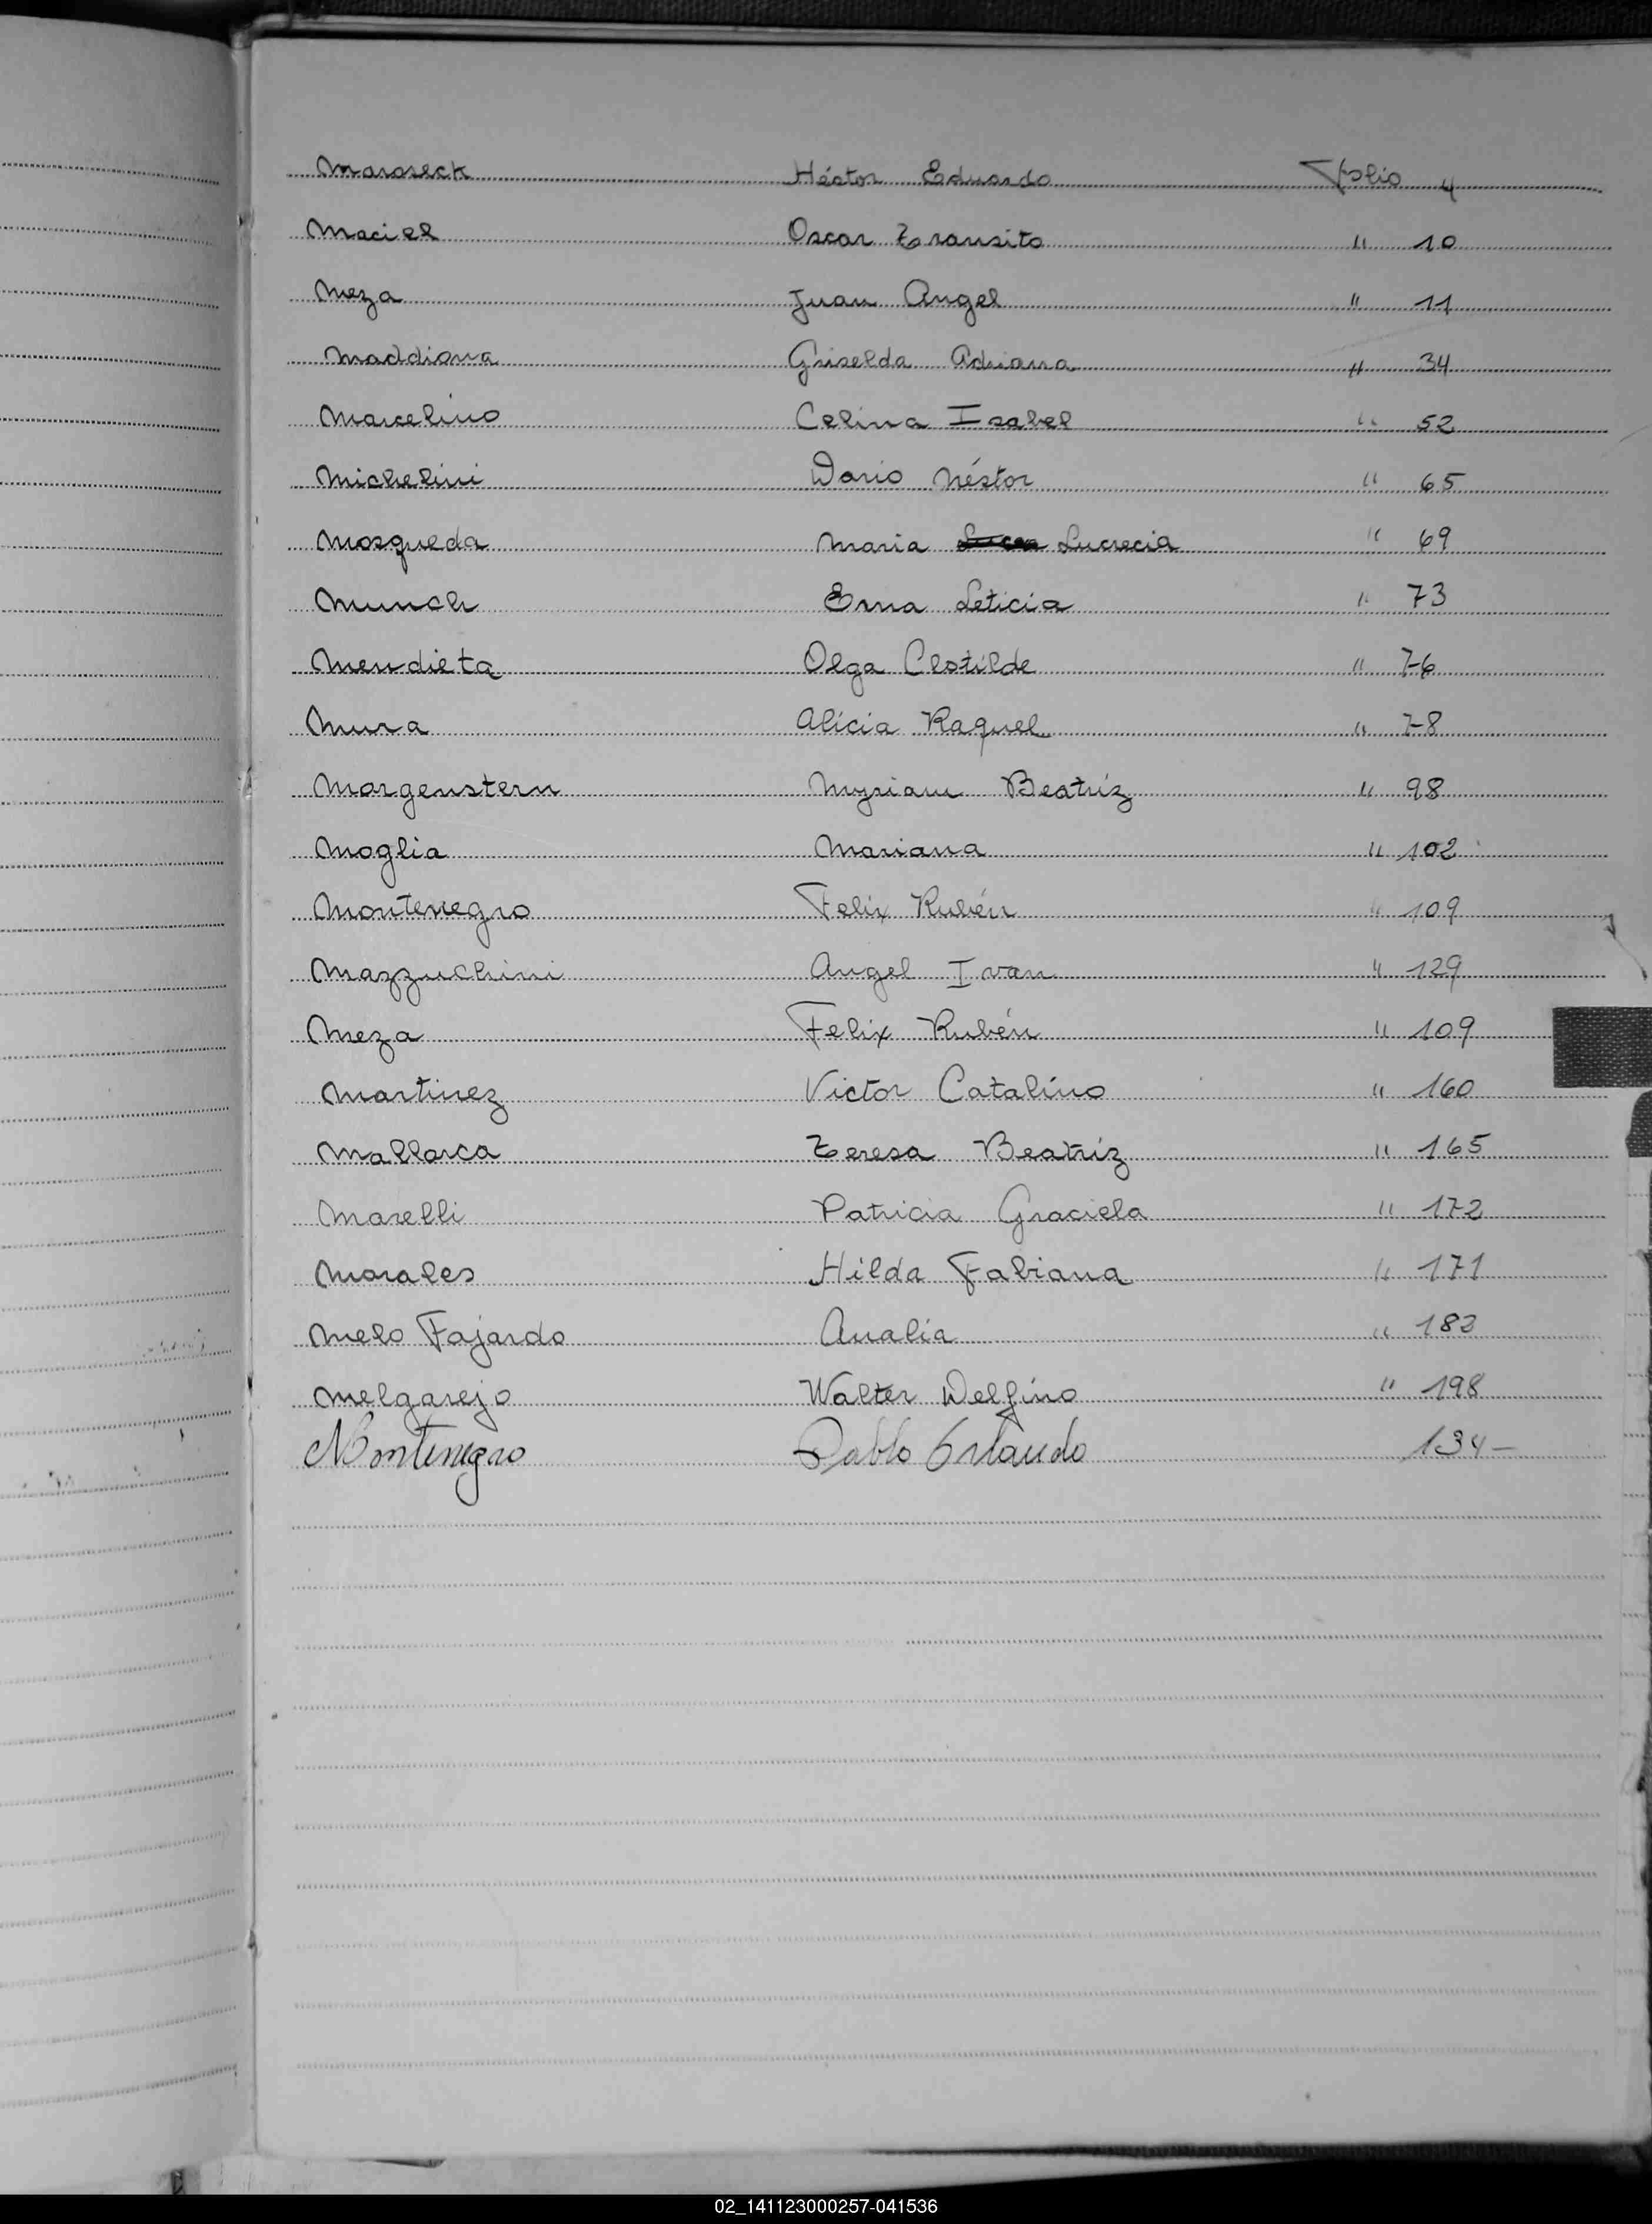 Maroseck Héctor Eduardo Folio 4
Maciel Oscar Transito " 10
Meza Juan Angel " 11
Maddiona Griselda Adriana " 34
Marcelino Celina Isabel " 52
Michelini Dario Néstor " 65
Mosqueda Maria Lucrecia " 69
Munch Erna Leticia " 73
Mendieta Olga Clotilde " 76
Mura Alicia Raquel " 78
Morgenstern Myriam Beatríz " 98
Moglia Mariana " 102
Montenegro Felix Rubén " 109
Mazzuchini Angel Ivan " 129
Meza Felix Rubén " 109
Martinez Victor Catalino " 160
Mallorca Teresa Beatríz " 165
Marelli Patricia Graciela " 172
Morales Hilda Fabiana " 171
Melo Fajardo Analía " 183
Melgarejo Walter Delfino " 198
Montenegro Pablo Orlando 134-
02_141123000257-041536